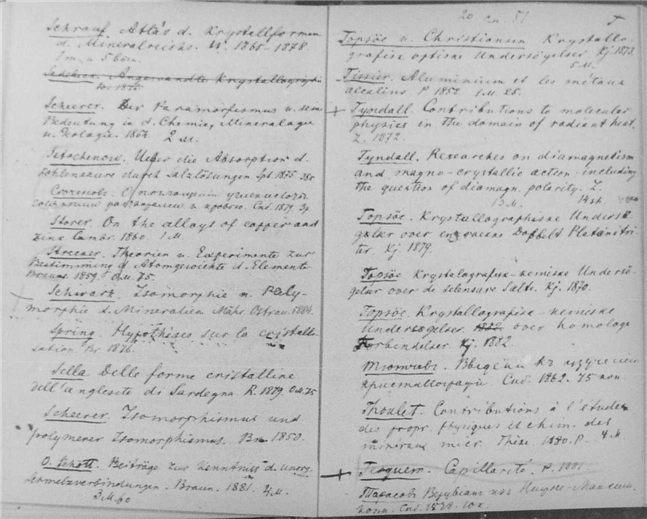 Schrauf. Atlas d. Krystallformen
d. Mineralreichs. W. 1865-1878.
Angewandte Krystallographie
Scheerer. Der Paramorfismus u. s.
Bedeutung in d. Chemie, Mineralogie
u. Geologie. 1854. 2 M.
Setschenow. Ueber die Absorption d.
Kohlensäure durch Salzlösungen. Spt. 1875
Сеченовъ. О поглощении угленислоты
Storer. On the alloys of copper and
zinc. Cambr. 1860. 1 M.
Strecker. Theorien u. Experimente zur
Bestimmung d. Atomgewichte d. Elemente
Braunš. 1859. 0 M. 75.
Schwarz. Isomorphie u. Poly-
morphie d. Mineralien Mähr. Ostrau. 1884.
Spring. Hypothèses sur la cristalli-
sation Br 1876.
Sella Delle forme cristalline
dell'anglesite di Sardegna. R. 1879. 0 M. 75
Scheerer. Isomorphismus und
polymerer Isomorphismus. Br. 1850.
O. Schott. Beiträge zur Kenntniss d. unorg.
Schmelzverbindungen. Braun. 1881. 3 M.
3 M. 60
20 51 T
Topsöe u. Christiansen Krystallo-
grafisk optiske Undersögelser. Kj. 1873.
5 M.
Tissier. Aluminium et les métaux
alcalins P. 1858. 1 M. 25.
+ Tyndall. Contributions to molecular
physics in the domain of radiant heat.
L. 1872.
Tyndall. Researches on diamagnetism
and magne-crystallic action; including
the question of diamagn. polarity. L.
14 sh.
Topsöe. Krystallographiske Undersö-
gelser over Dobbelt Platonitri-
ter. Kj. 1879.
Topsöe Krystalografisk-kemiske Undersö-
gelser over de selensure Salte. Kj. 1870.
Topsöe. Krystallografisk-kemiske
Undersögelser over homologe
Forbindelser Kj. 1882.
къ изучению
кристаллографии. Спб. 1862. 75 коп.
Thoulet. Contributions à l'étude
des propr. physiques et chim. des
minéraux micr. Thèse. 1880. P. 4 M
+ Terquem. Capillarité. P. 1881
Тарасовъ Везувианъ изъ